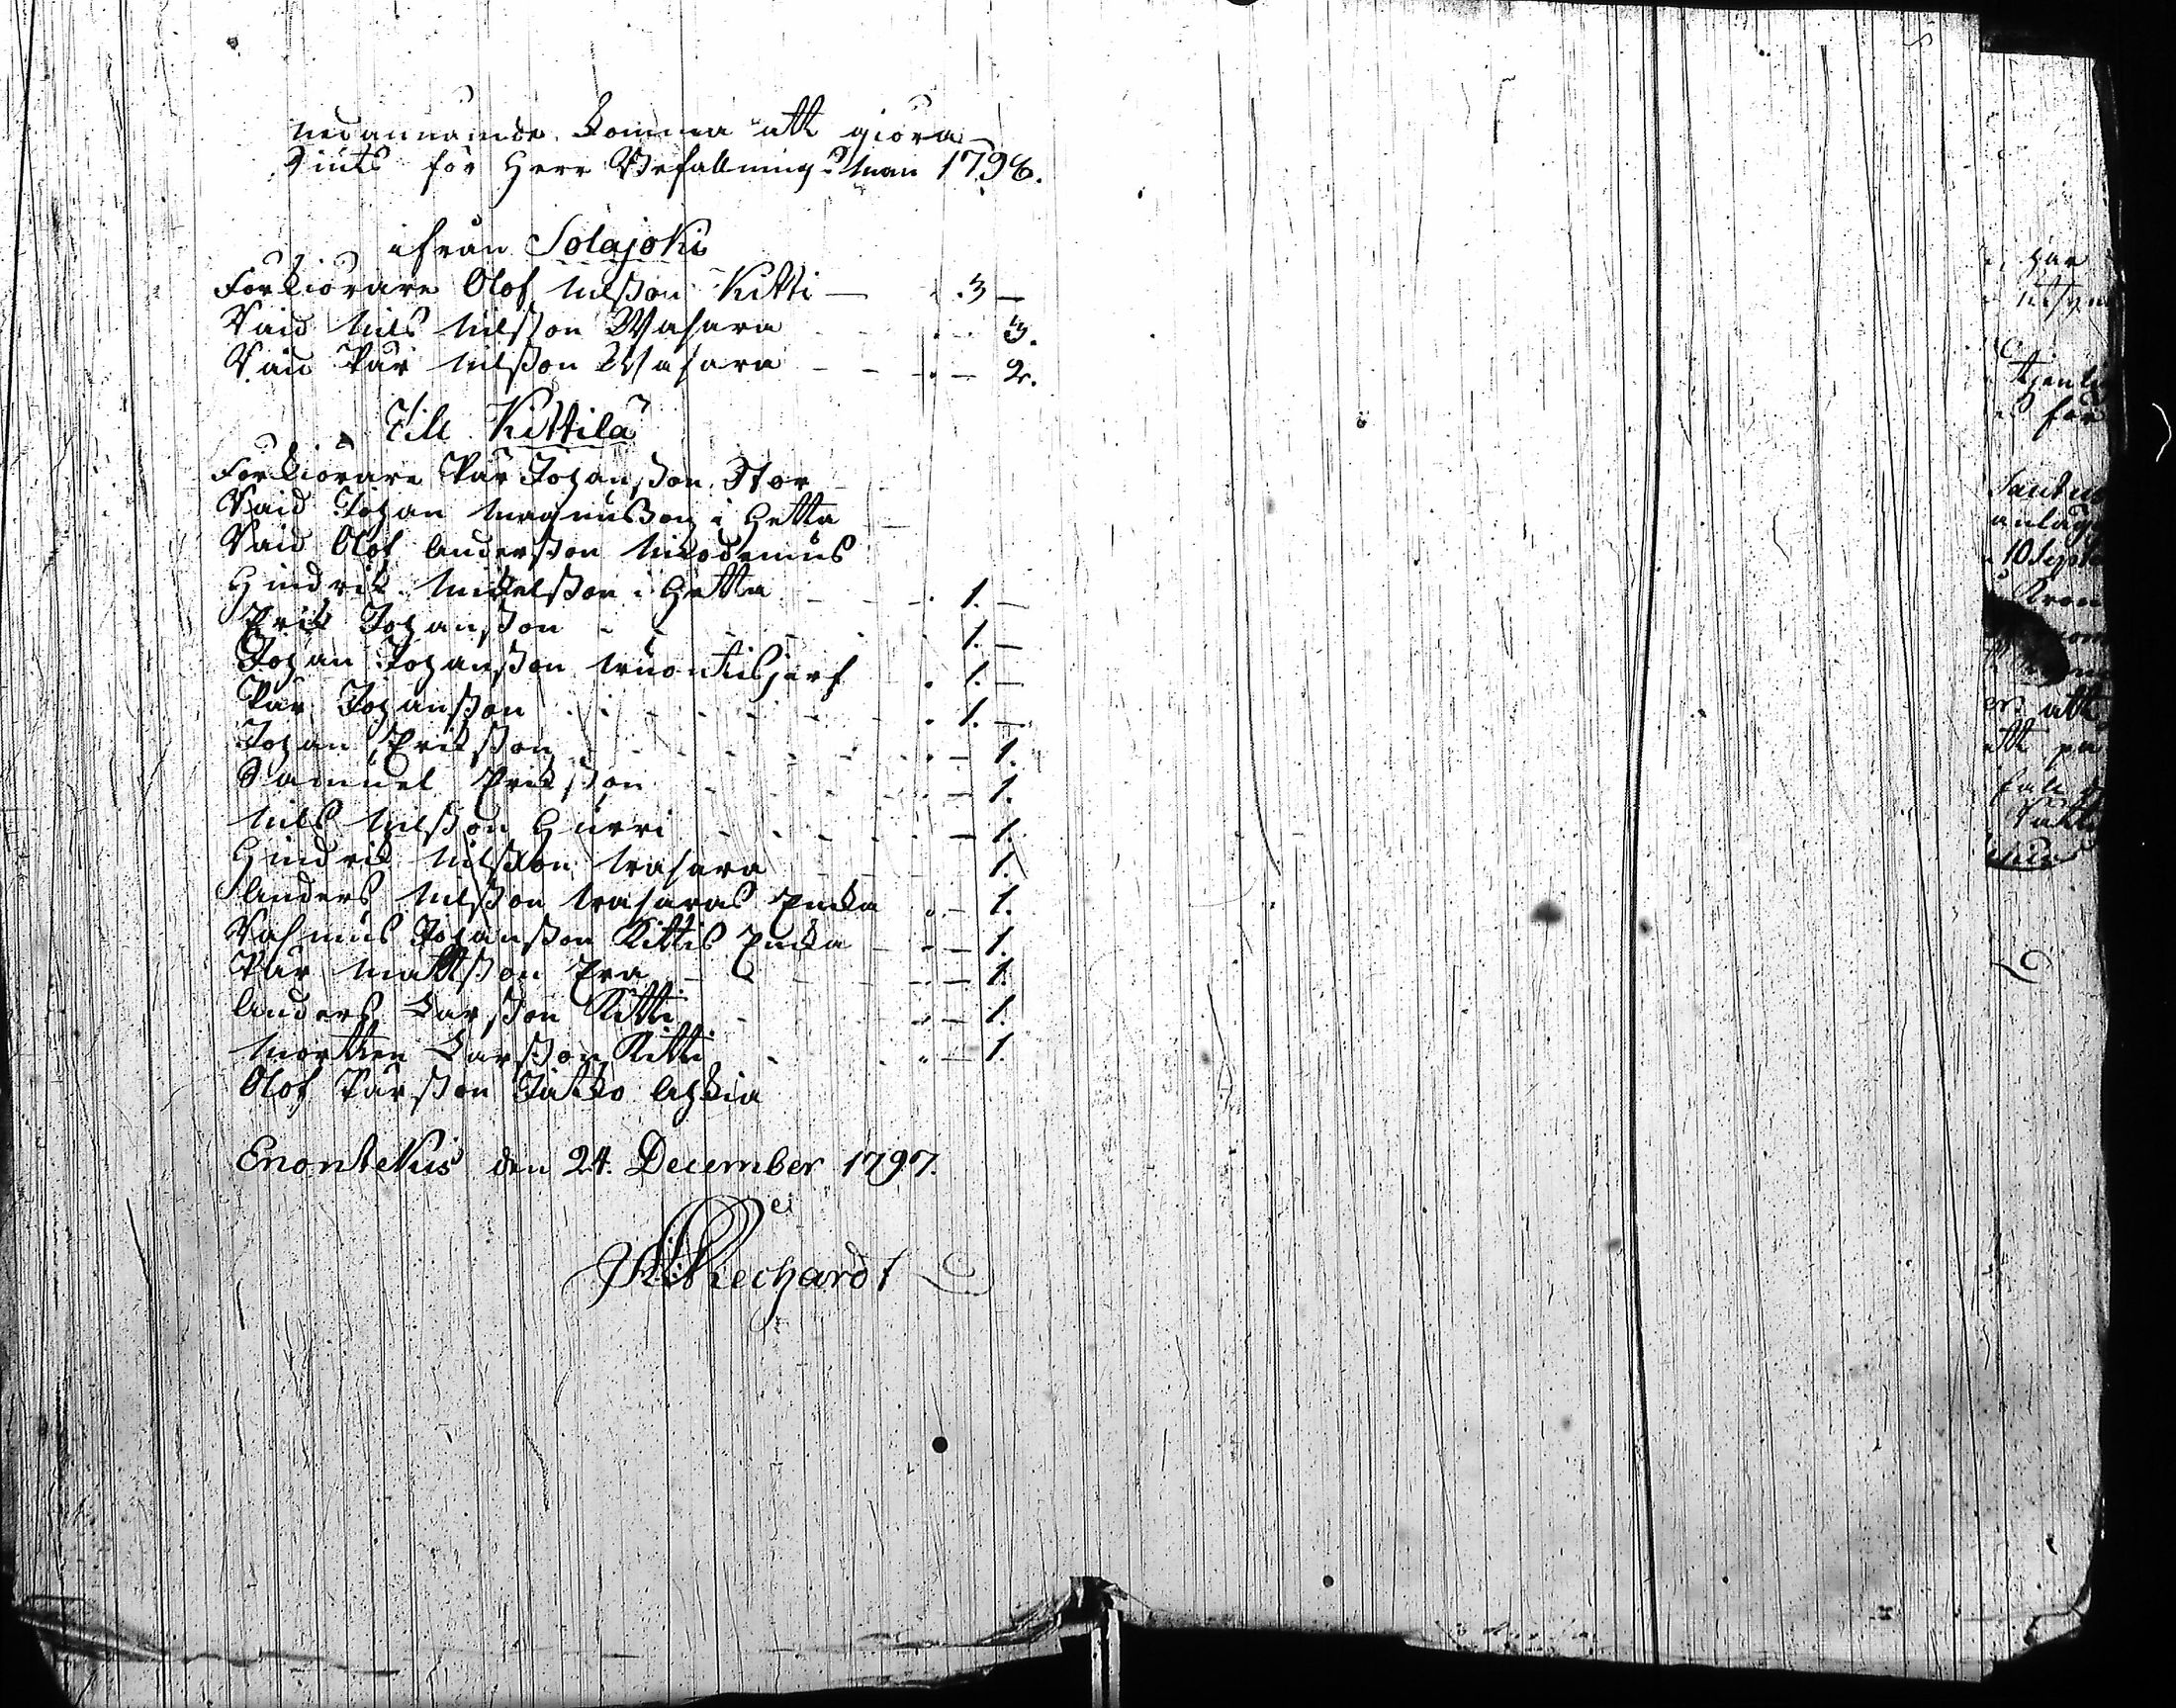 Nedannämde komma att giöra
Siuts för Herr Befallningsman 1798.
ifrån Solajoki
Forkiörare Olof Nilsson Kitti — . 3 —
Raid Nils Nilsson Wasara - - . - 3.
Raid Pär Nilsson Wasara - - . - 2.
Till Kittilä
Forkiörare Pär Johansson Stor
Raid Johan Magnusson i Hetta
Raid Olof Andersson Nicodemus
Hindrik Mickelsson i Hetta - - . 1. —
Erik Johansson - - . 1. —
Johan Johansson Wuontisjerf . 1. —
Pär Johansson - - - . 1. —
Johan Eriksson - - - . — 1.
Samuel Eriksson - - - . — 1.
Nils Nilsson Hurri - - - . — 1.
Hindrik Nilsson Wasara - - 1.
Anders Nilsson Wasaras Enka . — 1.
Rasmus Johansson Kittis Enka — . — 1.
Pär Mattsson Era - - - . — 1.
Anders Larsson Kitti - - . — 1.
Mortten Larsson Kitti - - . — 1.
Olof Pärsson Jatko
Enontekis den 24. December 1797.
Rechardt
har
för
anlagt
10 Septe
Kron
att